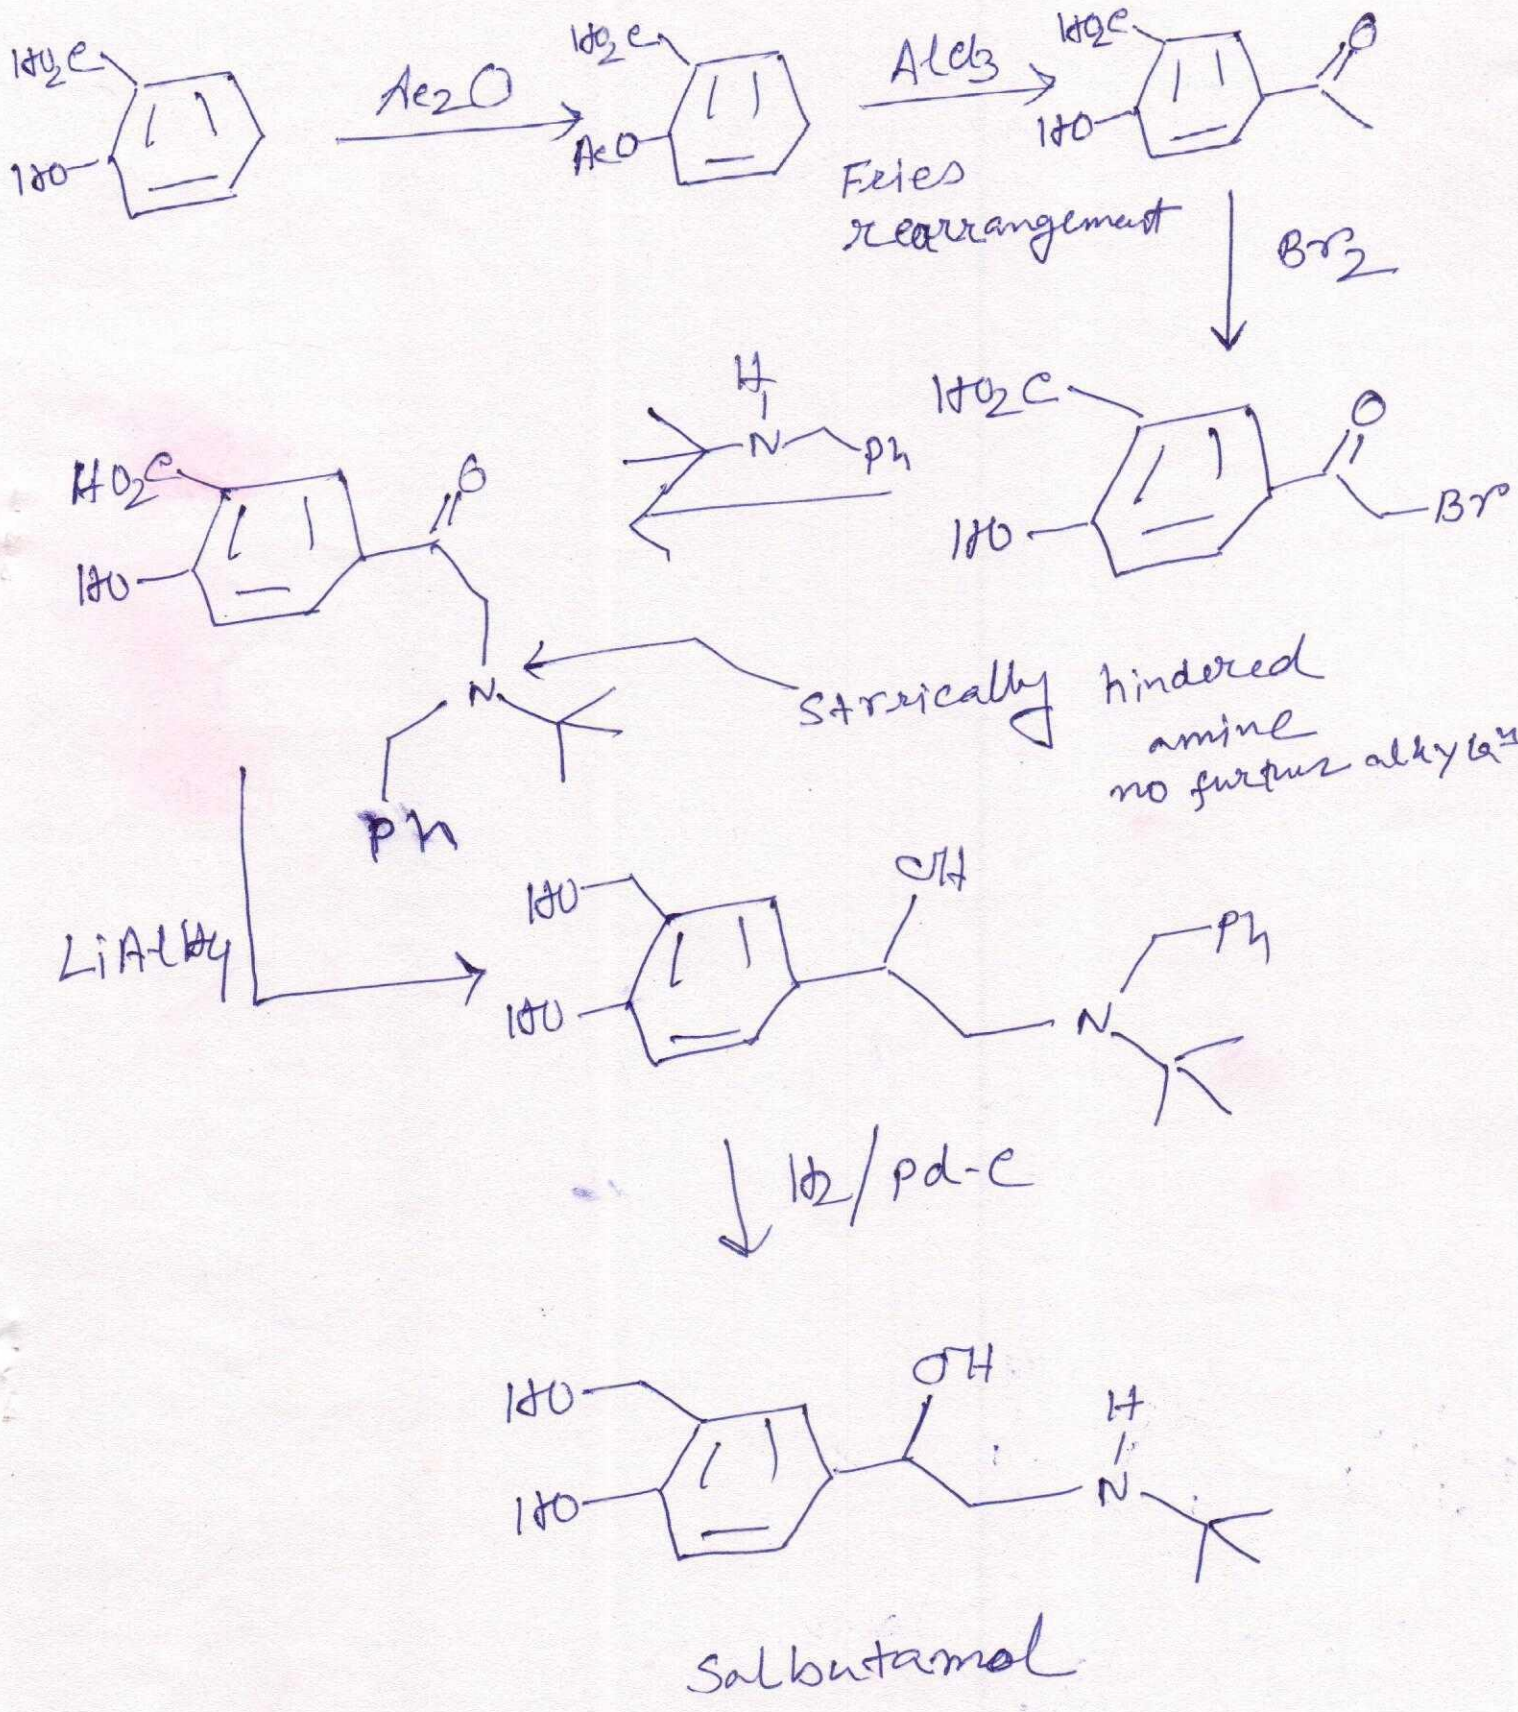 HO2C
HO
Ac2O
HO2C
AcO
AlCl3
Fries
rearrangement
HO2C
HO
O
Br2
HO2C
HO
O
Br
H
N
Ph
HO2C
HO
O
N
Ph
Strrically hindered
amine
no further alkylan
LiAlH4
HO
HO
OH
N
Ph
H2/Pd-C
HO
HO
OH
H
N
Salbutamol